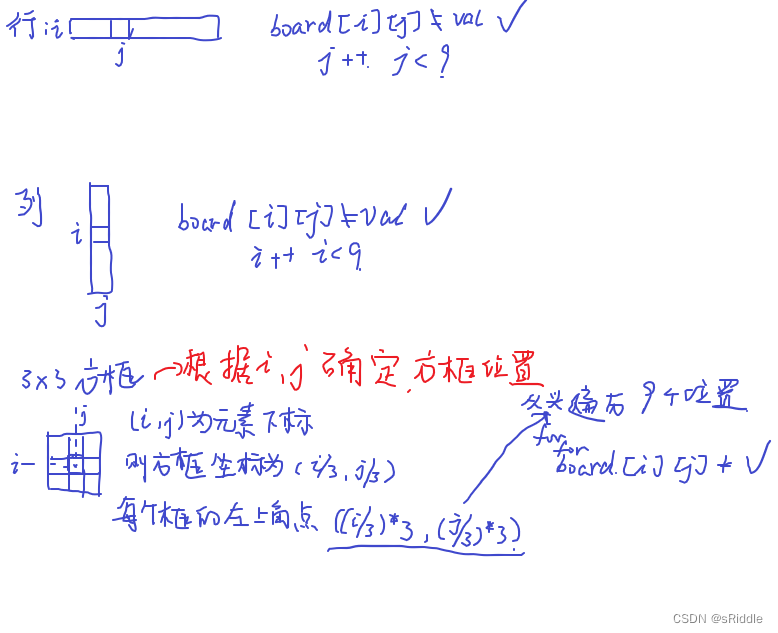 行 : i
board [i][j] ≠ val ✓
j
j++. j < 9
列
i
board [i][j] ≠ val ✓
i++ i<9
j
3×3 方框 → 根据 i, j 确定方框位置
j
(i,j)为元素下标
从头遍历 9个位置
i
for
for
则方框坐标为 (i/3, j/3)
board [i][j] ≠ ✓
每个框的左上角点 ((i/3)*3, (j/3)*3)
CSDN @sRiddle